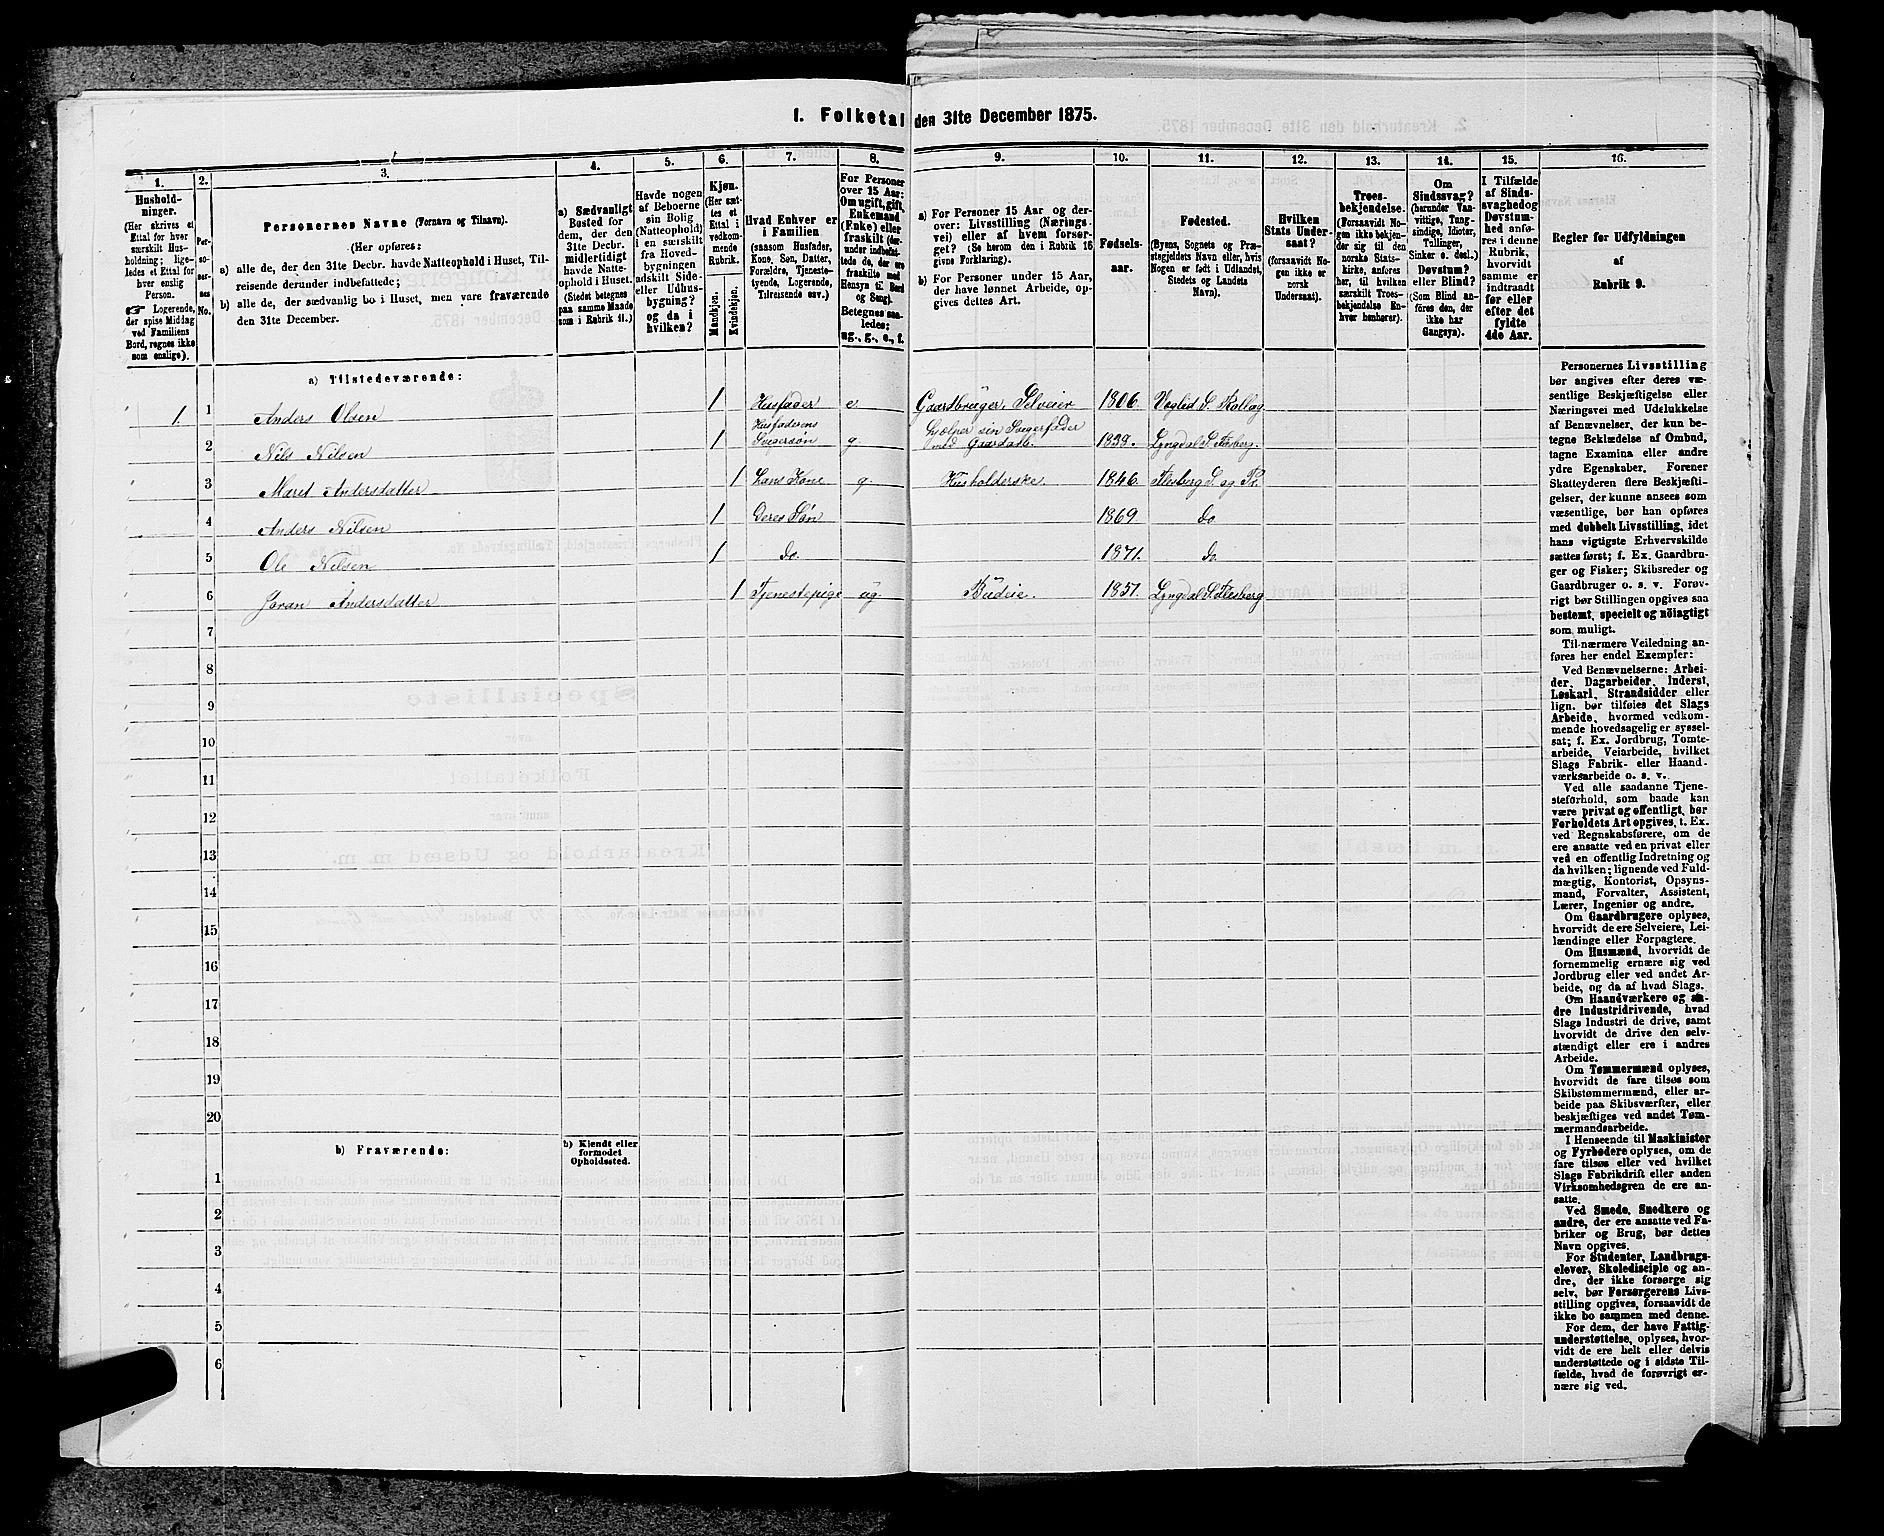 1. Folketal den 31te December 1875.
1.
2.
3.
4.
5.
6.
7.
8.
9.
10.
11.
12.
13.
14.
15.
16.
Hushold-
ninger.
(Her skrives et
Ettal for hver
særskilt Hus-
holdning; lige-
ledes et Ettal for
hver enslig
Person.
☞ Logerende,
der spise Middag
ved Familiens
Bord, regnes ikke
som enslige).
Per-
so-
ner-
nes
No.
Personernes Navne (Fornavn og Tilnavn).
(Her opføres:
a) alle de, der den 31te Decbr. havde Natteophold i Huset, Til-
reisende derunder indbefattede;
b) alle de, der sædvanlig bo i Huset, men vare fraværende
den 31te December.
a) Sædvanligt
Bosted for
dem, der den
31te Decbr.
midlertidigt
havde Natte-
ophold i Huset.
(Stedet betegnes
paa samme Maade
som i Rubrik 11.)
Havde nogen
af Beboerne
sin Bolig
(Natteophold)
i en særskilt
fra Hoved-
bygningen
adskilt Side-
eller Udhus-
bygning?
og da i
hvilken?
Kjøn.
(Her sæt-
tes et
Ettal i
vedkom-
mende
Rubrik.
Mandkjøn.
Kvindekjøn.
Hvad Enhver er
i Familien
(saasom Husfader,
Kone, Søn, Datter,
Forældre, Tjeneste-
tyende, Logerende,
Tilreisende osv.)
For Personer
over 15 Aar:
Om ugift, gift,
Enkemand
(Enke) eller
fraskilt (der-
under indbefat-
tede de, der ere
fraskilte med
Hensyn til Bord
og Seng).
Betegnes saa-
ledes:
ug., g., e., f.
a) For Personer 15 Aar og der-
over: Livsstilling (Nærings-
vei) eller af hvem forsør-
get? (Se herom den i Rubrik 16
givne Forklaring).
b) For Personer under 15 Aar,
der have lønnet Arbeide, op-
gives dettes Art.
Fødsels-
aar.
Fødested.
(Byens, Sognets og Præ-
stegjeldets Navn eller, hvis
Nogen er født i Udlandet,
Stedets og Landets
Navn).
Hvilken
Stats Under-
saat?
(forsaavidt No-
gen ikke er
norsk
Undersaat).
Troes-
bekjendelse.
(Forsaavidt No-
gen ikke bekjen-
der sig til den
norske Stats-
kirke, anføres
her, til hvilken
særskilt Troes-
bekjendelse En-
hver henhører).
Om
Sindssvag?
(herunder Van-
vittige, Tung-
sindige, Idioter,
Tullinger,
Sinker o. desl.)
Døvstum?
eller Blind?
(Som Blind an-
føres den, der
ikke har
Gangsyn).
I Tilfælde
af Sinds-
svaghed og
Døvstum-
hed anfø-
res i denne
Rubrik,
hvorvidt
samme er
indtraadt
før eller
efter det
fyldte
4de Aar.
Regler for Udfyldningen
af
Rubrik 9.
a) Tilstedeværende:
1. 1 Anders Olsen 1 Husfader e Gaardbruger, Selveier 1806. Veglid S. Rollag
2 Nils Nilsen 1 Husfaderens Svigersøn g. hjælper sin Svigerfader med Gaardarb. 1838. Lyngdal S. Flesberg.
3 Maret Andersdatter 1 hans Kone g. Husholderske. 1846. Flesberg S. og Pr.
4 Anders Nilsen 1 Deres Søn 1869. do.
5 Ole Nilsen 1 do. 1871. do.
6 Joran Andersdatter 1 Tjenestepige ug. Budeie. 1857. Lyngdal S. Flesberg
7
8
9
10
11
12
13
14
15
16
17
18
19
20
b) Fraværende:
b) Kjendt eller
formodet
Opholdssted.
1
2
3
4
5
6
Personernes Livsstilling
bør angives efter deres væ-
sentlige Beskjæftigelse eller
Næringsvei med Udelukkelse
af Benævnelser, der kun be-
tegne Beklædelse af Ombud,
tagne Examina eller andre
ydre Egenskaber. Forener
Skatteyderen flere Beskjæfti-
gelser, der kunne ansees som
væsentlige, bør han opføres
med dobbelt Livsstilling, idet
hans vigtigste Erhvervskilde
sættes først; f. Ex. Gaardbru-
ger og Fisker; Skibsreder og
Gaardbruger o. s. v. Forøv-
rigt bør Stillingen opgives saa
bestemt, specielt og nøiagtigt
som muligt.
Til nærmere Veiledning an-
føres her endel Exempler:
Ved Benævnelserne: Arbei-
der, Dagarbeider, Inderst,
Løskarl, Strandsidder eller
lign. bør tilføies det Slags
Arbeide, hvormed vedkom-
mende hovedsagelig er syssel-
sat; f. Ex. Jordbrug, Tomte-
arbeide, Veiarbeide, hvilket
Slags Fabrik- eller Haand-
værksarbeide o. s. v.
Ved alle saadanne Tjene-
steforhold, som baade kan
være privat og offentligt, bør
Forholdets Art opgives, t. Ex.
ved Regnskabsførere, om de
ere ansatte ved en privat eller
ved en offentlig Indretning og
da hvilken; lignende ved Fuld-
mægtig, Kontorist, Opsyns-
mand, Forvalter, Assistent,
Lærer, Ingeniør og andre.
Om Gaardbrugere oplyses,
hvorvidt de ere Selveiere, Lei-
lændinge eller Forpagtere.
Om Husmænd, hvorvidt de
fornemmelig ernære sig ved
Jordbrug eller ved andet Ar-
beide, og da af hvad Slags.
Om Haandværkere og an-
dre Industridrivende, hvad
Slags Industri de drive, samt
hvorvidt de drive den selv-
stændigt eller ere i andres
Arbeide.
Om Tømmermænd oplyses,
hvorvidt de fare tilsøs som
Skibstømmermænd, eller ar-
beide paa Skibsværfter, eller
beskjæftiges ved andet Tøm-
mermandsarbeide.
I Henseende til Maskinister
og Fyrbødere oplyses, om de
fare tilsøs eller ved hvilket
Slags Fabrikdrift eller anden
Virksomhedsgren de ere an-
satte.
Ved Smede, Snedkere og
andre, der ere ansatte ved Fa-
briker og Brug, bør dettes
Navn opgives.
For Studenter, Landbrugs-
elever, Skoledisciple og an-
dre, der ikke forsørge sig
selv, bør Forsørgerens Livs-
stilling opgives, forsaavidt de
ikke bo sammen med denne.
For dem, der have Fattig-
understøttelse, oplyses, hvor-
vidt de ere helt eller delvis
understøttede og i sidste Til-
fælde, hvad de forøvrigt er-
nære sig ved.